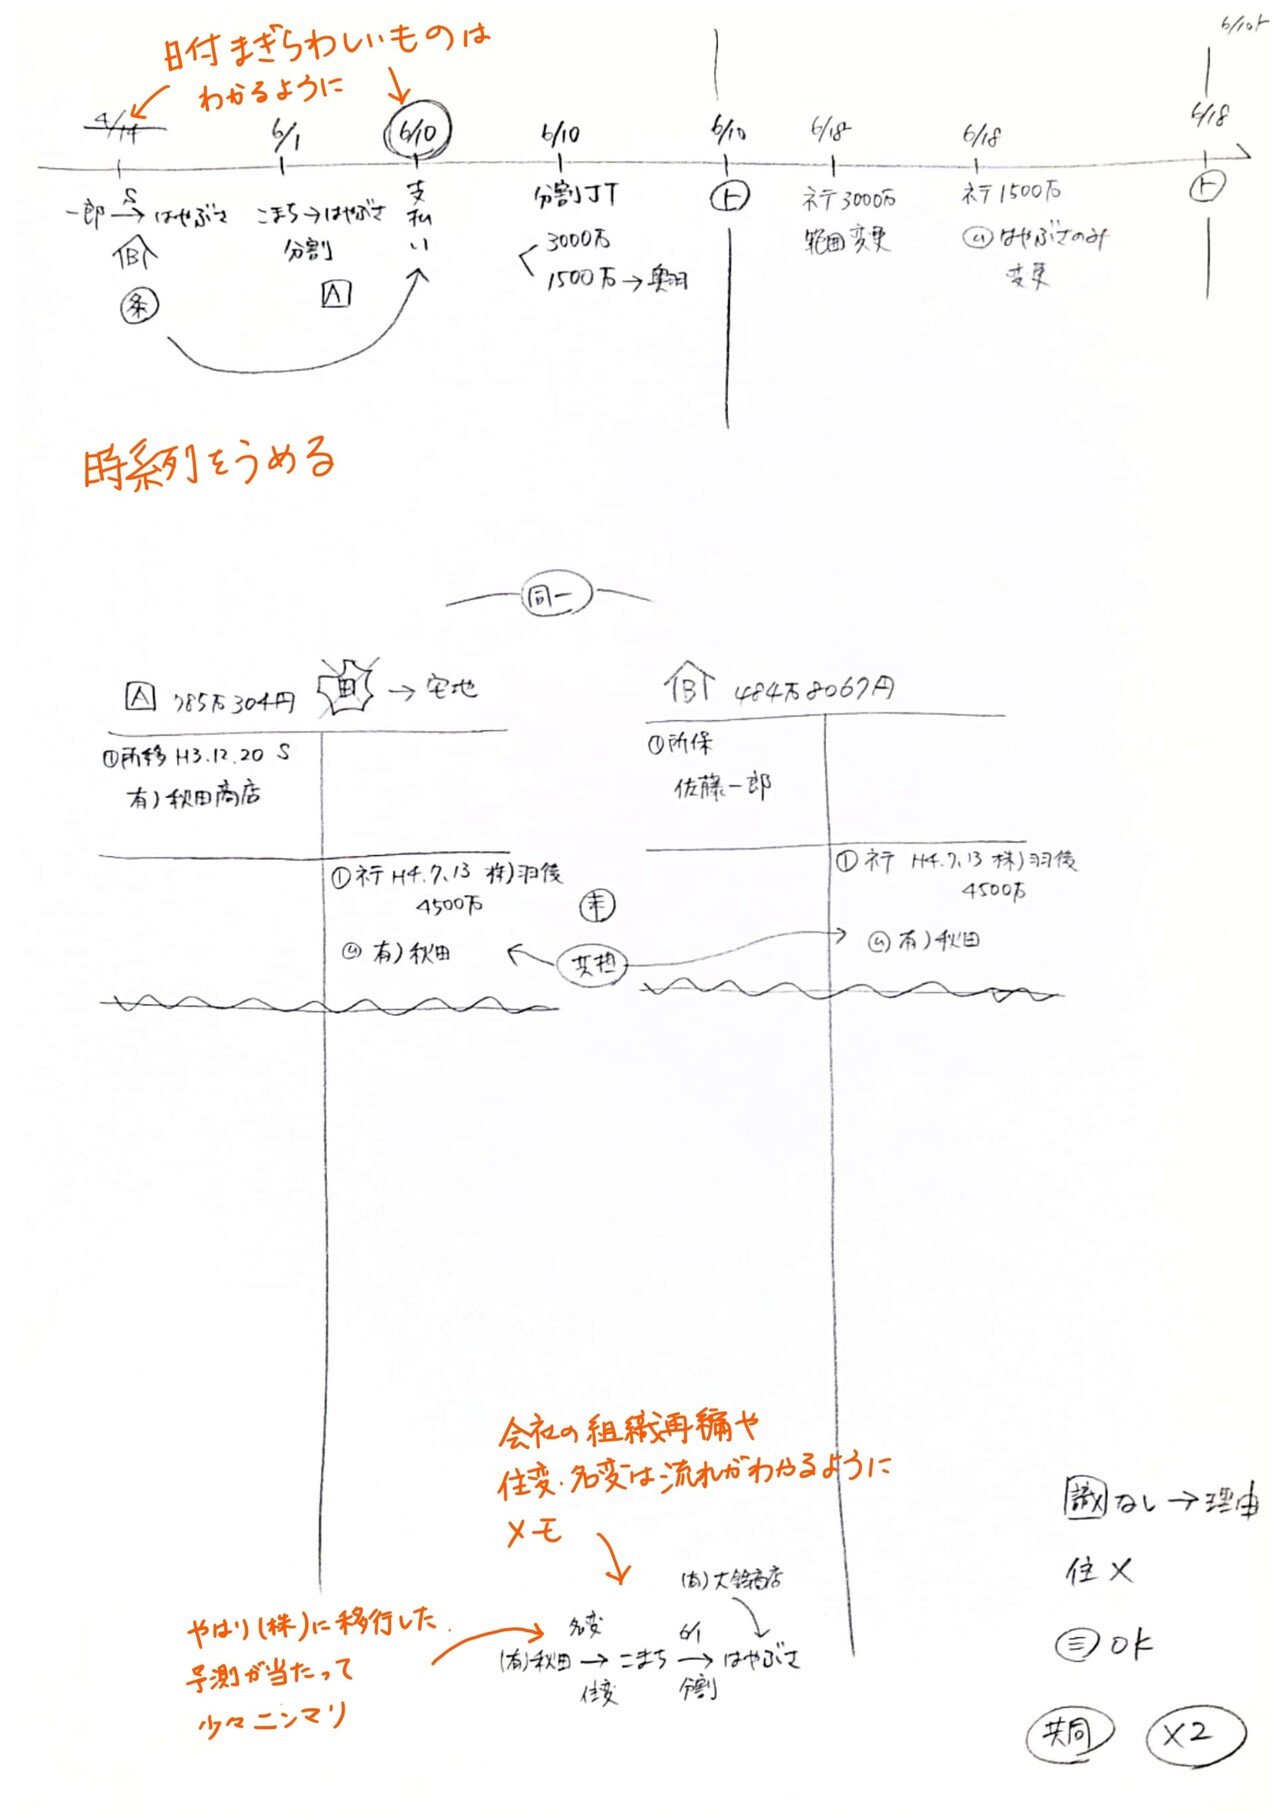 6/10ト
日付まぎらわしいものは
わかるように
4/14
6/1
6/10
6/10
6/10
6/18
6/18
6/18
S
一郎→はやぶさ
B
条
こまち→はやぶさ
分割
A
支払い
分割JT
3000万
1500万→奥羽
ト
ネテ3000万
範囲変更
ネテ1500万
はやぶさのみ
変更
ト
時系列をうめる
同一
A 785万304円 田→宅地
①所移 H3.12.20 S
有)秋田商店
①ネテ H4.7.13 株)羽後
4500万
有)秋田
共担
B 484万8067円
①所保
佐藤一郎
①ネテ H4.7.13 株)羽後
4500万
有)秋田
会社の組織再編や
住変・名変は流れがわかるように
メモ
やはり(株)に移行した
予測が当たって
少々ニンマリ
(有)大鈴商店
名変 6/1
(有)秋田→こまち→はやぶさ
住変 分割
識なし→理由
住×
三OK
共同 ×2